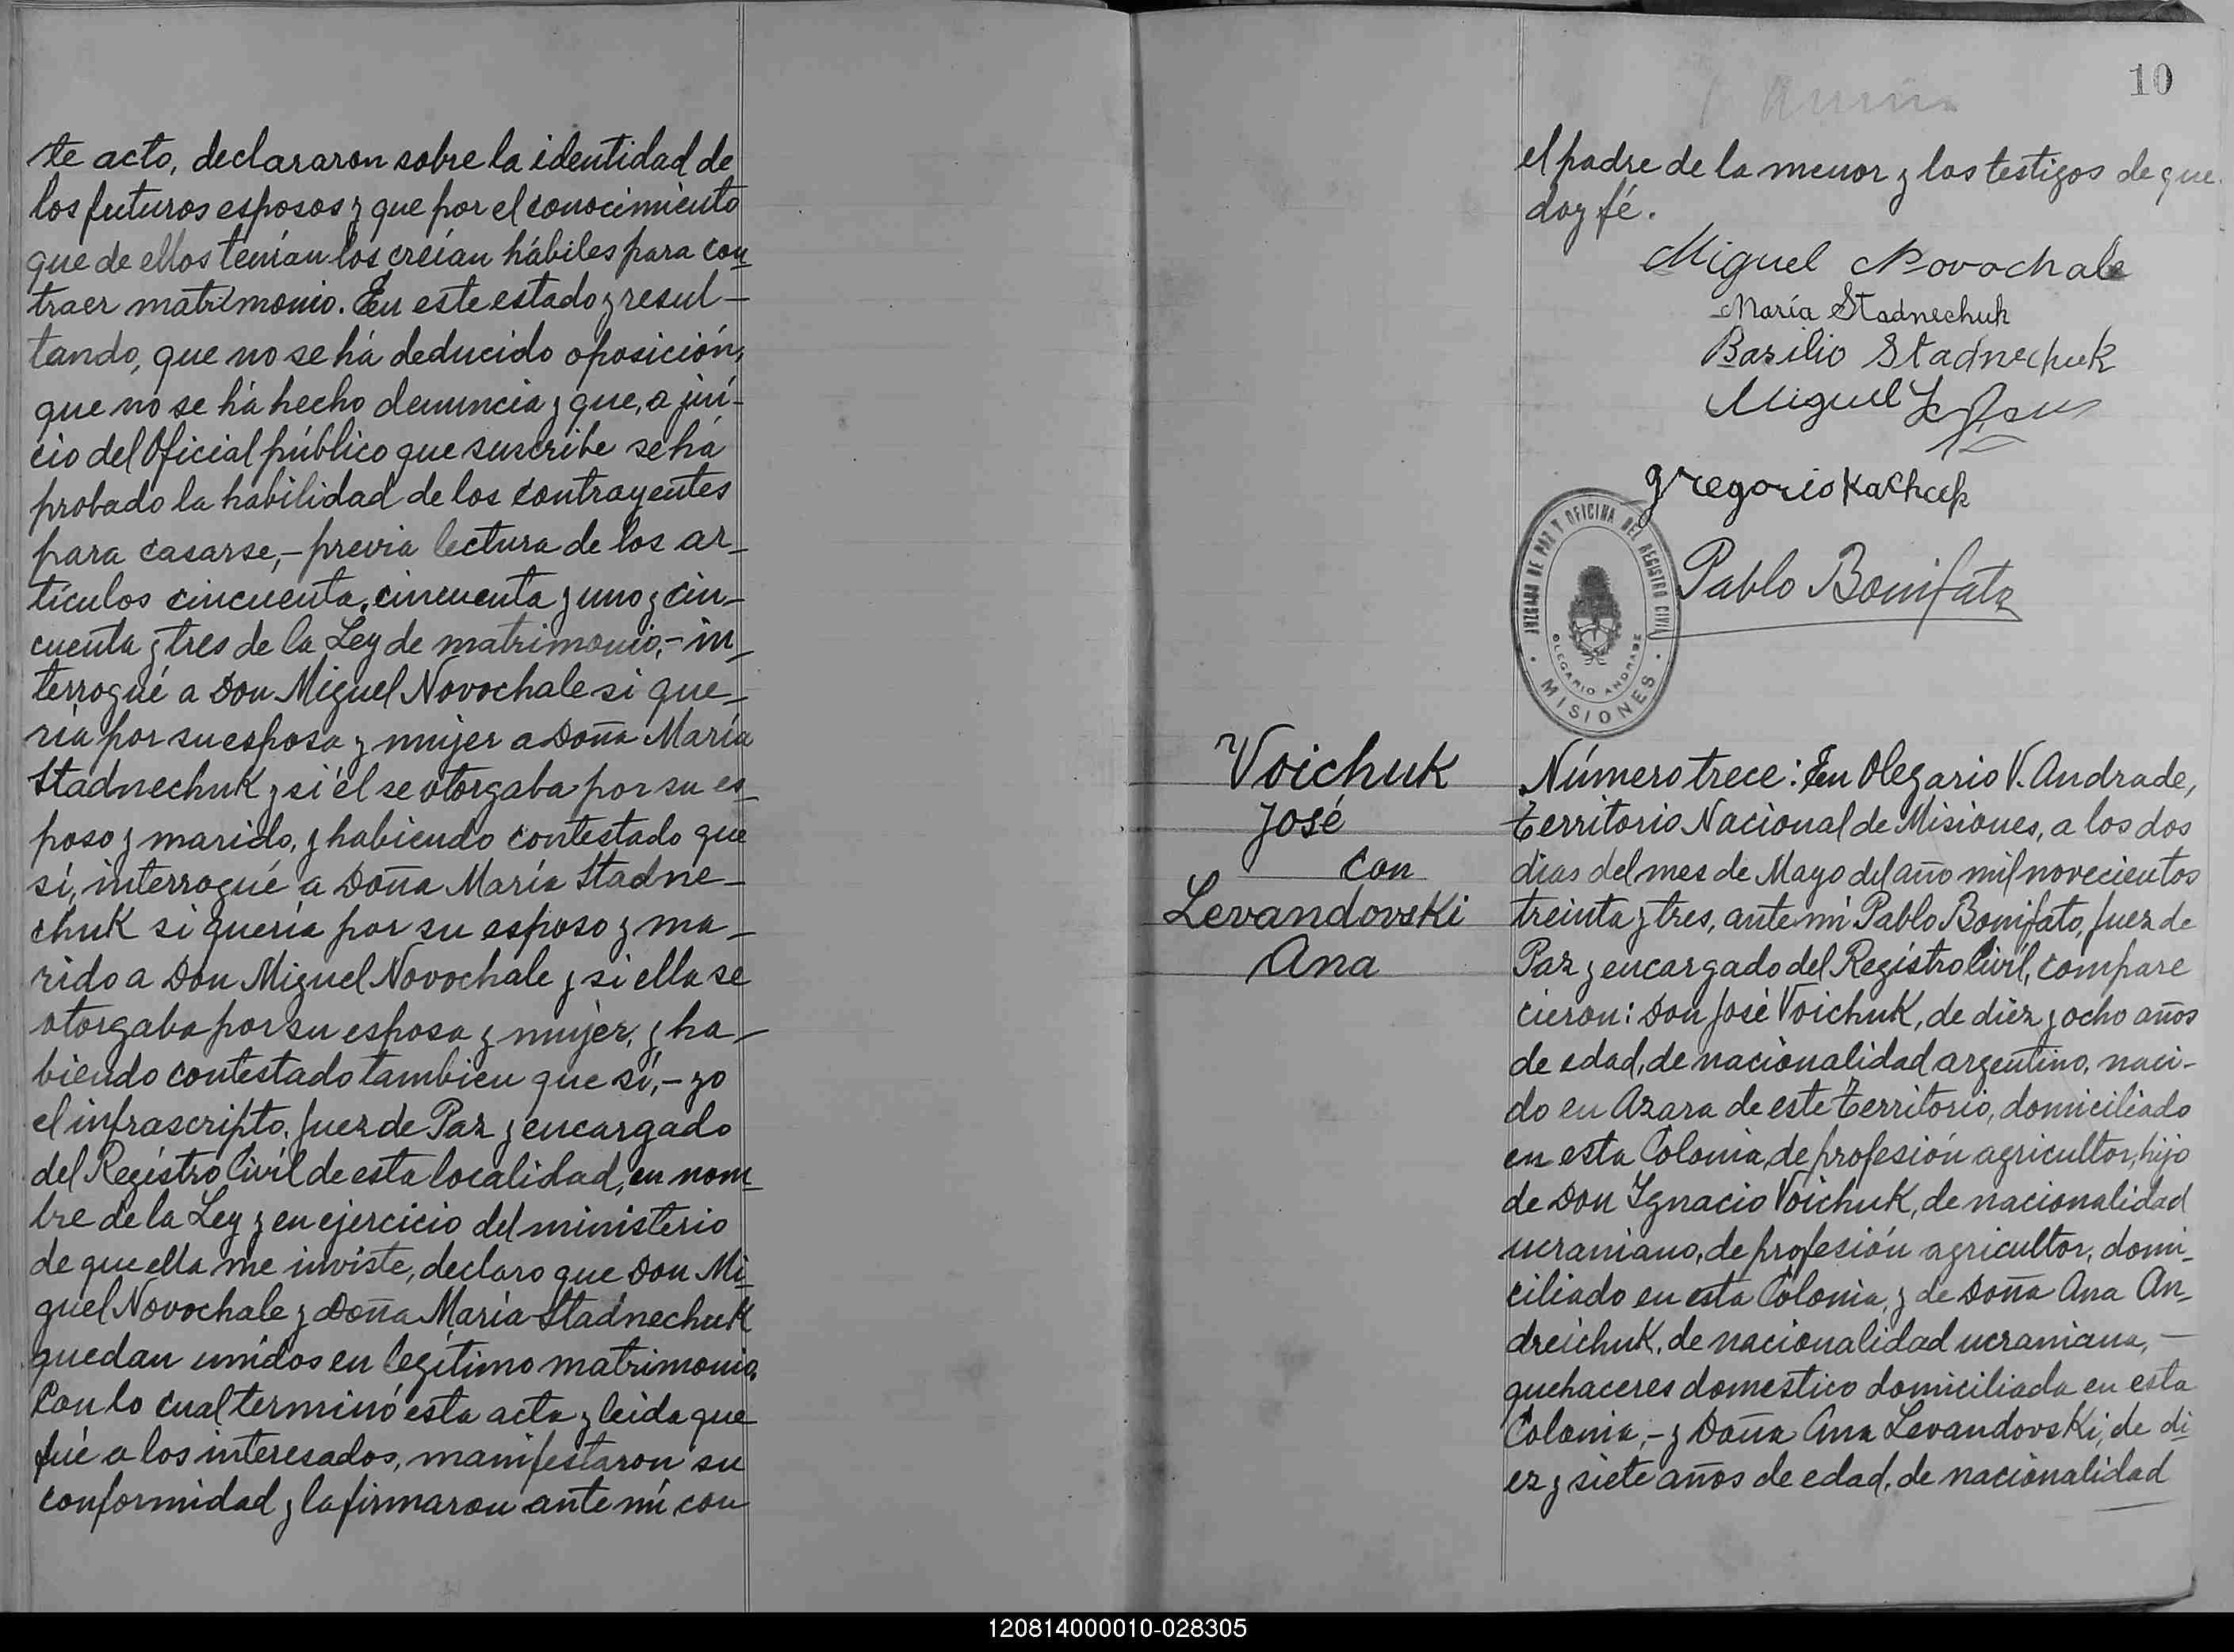 te acto, declararon sobre la identidad de
los futuros esposos y que por el conocimiento
que de ellos tenían los creían hábiles para con_
traer matrimonio. En este estado y resul-
tando, que no se há deducido oposición,
que no se há hecho denuncia y que, a jui-
cio del Oficial público que suscribe se há
probado la habilidad de los contrayentes
para casarse,- previa lectura de los ar_
tículos cincuenta, cincuenta y uno y cin-
cuenta y tres de la Ley de matrimonio,- in_
terrogué a Don Miguel Novochale si que_
ría por su esposa y mujer a Doña María
Stadnechuk y si él se otorgaba por su es_
poso y marido, y habiendo contestado que
sí, interrogué a Doña María Stadne-
chuk si quería por su esposo y ma_
rido a Don Miguel Novochale y si ella se
otorgaba por su esposa y mujer, y ha-
biendo contestado tambien que sí,- yo
el infrascripto, Juez de Paz y encargado
del Registro Civil de esta localidad, en nom_
bre de la Ley y en ejercicio del ministerio
de que ella me inviste, declaro que Don Mi_
guel Novochale y Doña María Stadnechuk
quedan unidos en legítimo matrimonio.
Con lo cual terminó esta acta y leida que
fué a los interesados, manifestaron su
conformidad y la firmaron ante mí con
10
el padre de la menor y los testigos de que
doy fé.
Miguel Novochale
María Stadnechuk
Basilio Stadnechuk
Miguel
Gregorio Kachuk
JUZGADO DE PAZ Y OFICINA DEL REGISTRO CIVIL
OLEGARIO ANDRADE
MISIONES
Pablo Bonifato
Voichuk
José
con
Levandovski
Ana
Número trece: En Olegario V. Andrade,
Territorio Nacional de Misiones, a los dos
dias del mes de Mayo del año mil novecientos
treinta y tres, ante mí Pablo Bonifato, Juez de
Paz y encargado del Registro Civil, compare
cieron: Don José Voichuk, de diez y ocho años
de edad, de nacionalidad argentino, naci-
do en Azara de este Territorio, domiciliado
en esta Colonia, de profesión agricultor, hijo
de Don Ygnacio Voichuk, de nacionalidad
ucraniano, de profesión agricultor, domi_
ciliado en esta Colonia, y de Doña Ana An_
dreichuk, de nacionalidad ucraniana, -
quehaceres domestico domiciliada en esta
Colonia,- y Doña Ana Levandovski, de di_
ez y siete años de edad, de nacionalidad
120814000010-028305